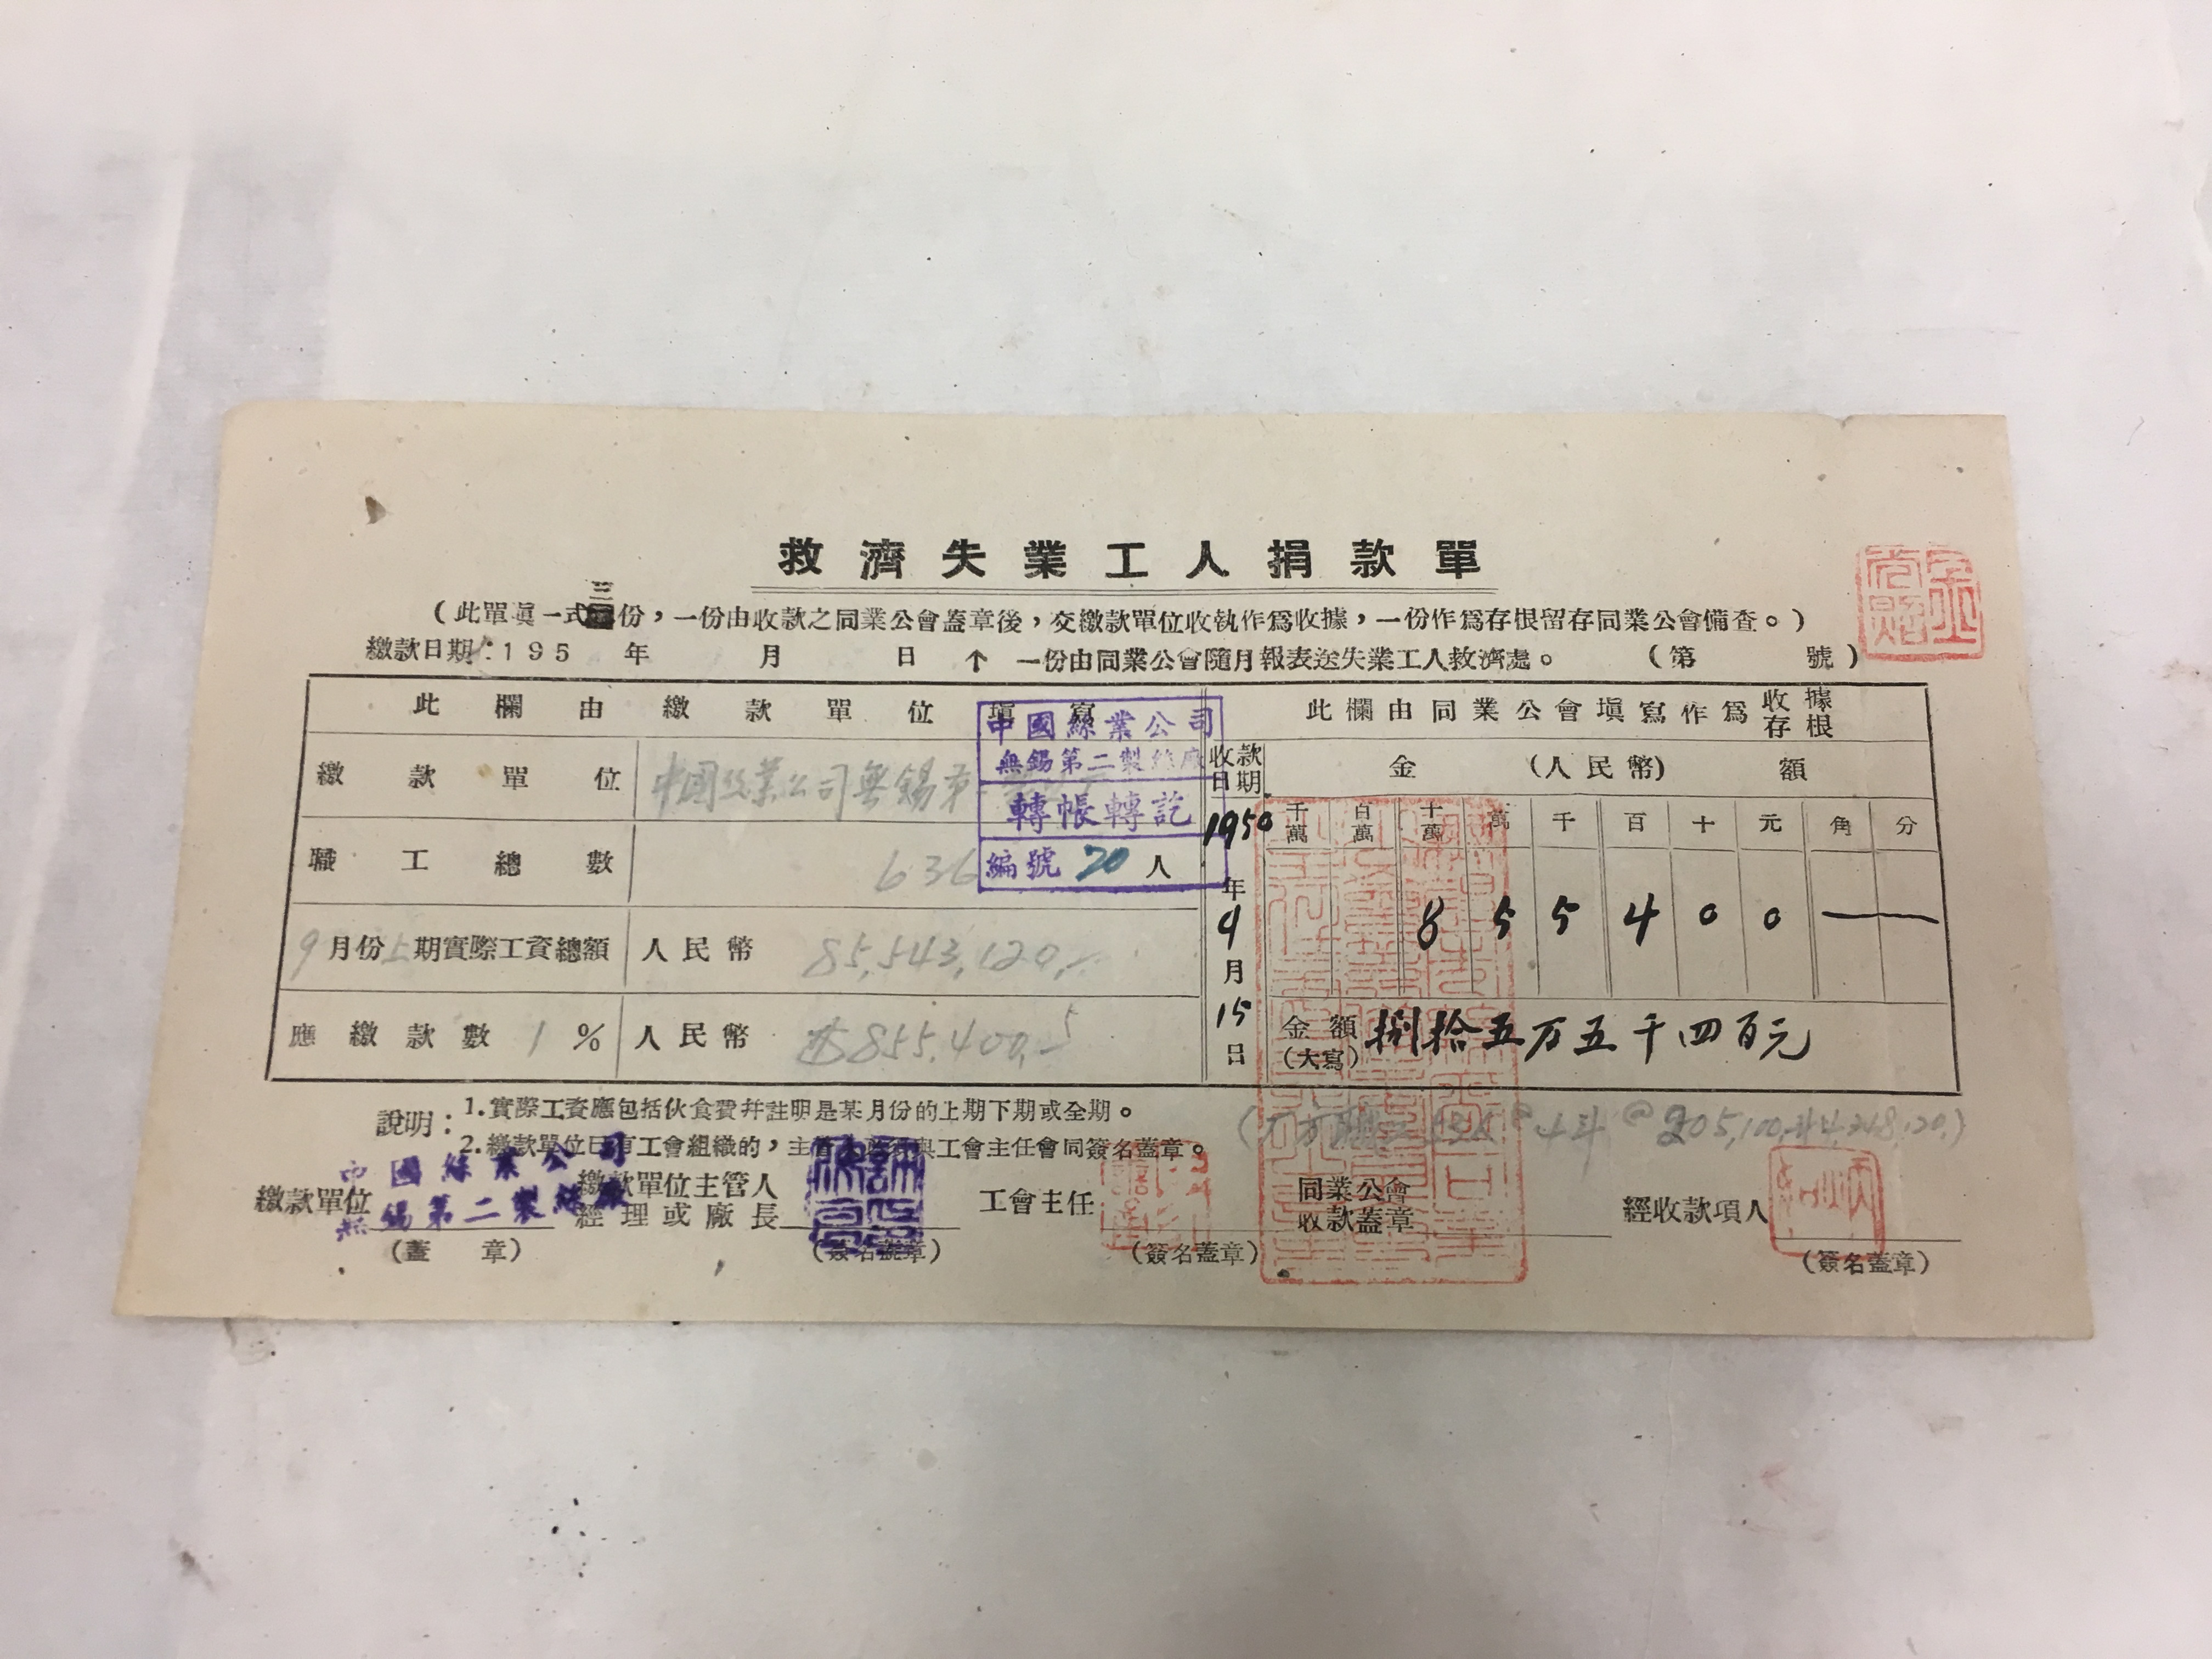 救濟失業工人捐款單
三
(此單填一式份，一份由收款之同業公會蓋章後，交繳款單位收執作爲收據，一份作爲存根留存同業公會備查。)
繳款日期：195 年 月 日 ↑ 一份由同業公會隨月報表送失業工人救濟處。 (第 號)
此欄由繳款單位填寫
此欄由同業公會填寫作爲收據存根
中國絲業公司
無錫第二製絲廠
轉帳轉訖
編號 20
繳款單位 中國丝業公司無錫第
職工總數 636 人
9月份上期實際工資總額 人民幣 85,543,120.
應繳款數 1 % 人民幣 855,400.
收款日期
1950年9月15日
金 (人民幣) 額
千萬 百萬 十萬 萬 千 百 十 元 角 分
8 5 5 4 0 0 —
金額(大寫) 捌拾五万五千四百元
說明：1.實際工資應包括伙食費幷註明是某月份的上期下期或全期。
2.繳款單位已有工會組織的，主管與工會主任會同簽名蓋章。
205,100
中國絲業公司
無錫第二製絲廠
繳款單位
(蓋 章)
繳款單位主管人
經理或廠長
(簽名蓋章)
工會主任
(簽名蓋章)
同業公會
收款蓋章
經收款項人
(簽名蓋章)